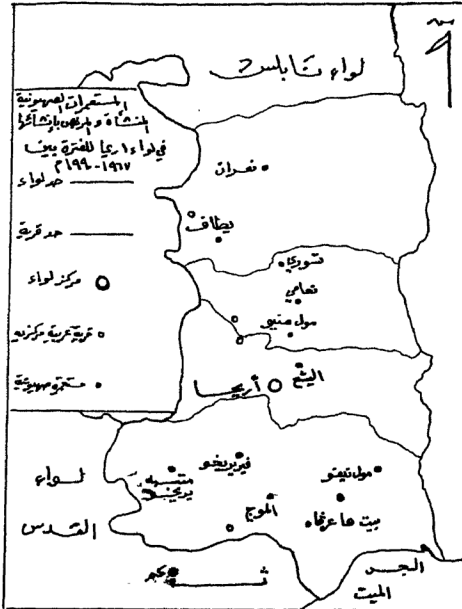 لواء نابلس
المستعمرات الصهيونية
المنشأة والمرخص بإنشائها
في لواء اريحا للفترة بين
١٩٦٧-١٩٩٠م
حد لواء
حد قرية
مركز لواء
قرية عربية مركزية
مستعمرة صهيونية
نعران
يطاف
تومري
نعامي
مول منيو
اليشع
أريحا
لواء
القدس
فيريد يريحو
متسبيه
يريحو
الموج
مول نيفو
بيت هاعرفاه
البحر
الميت